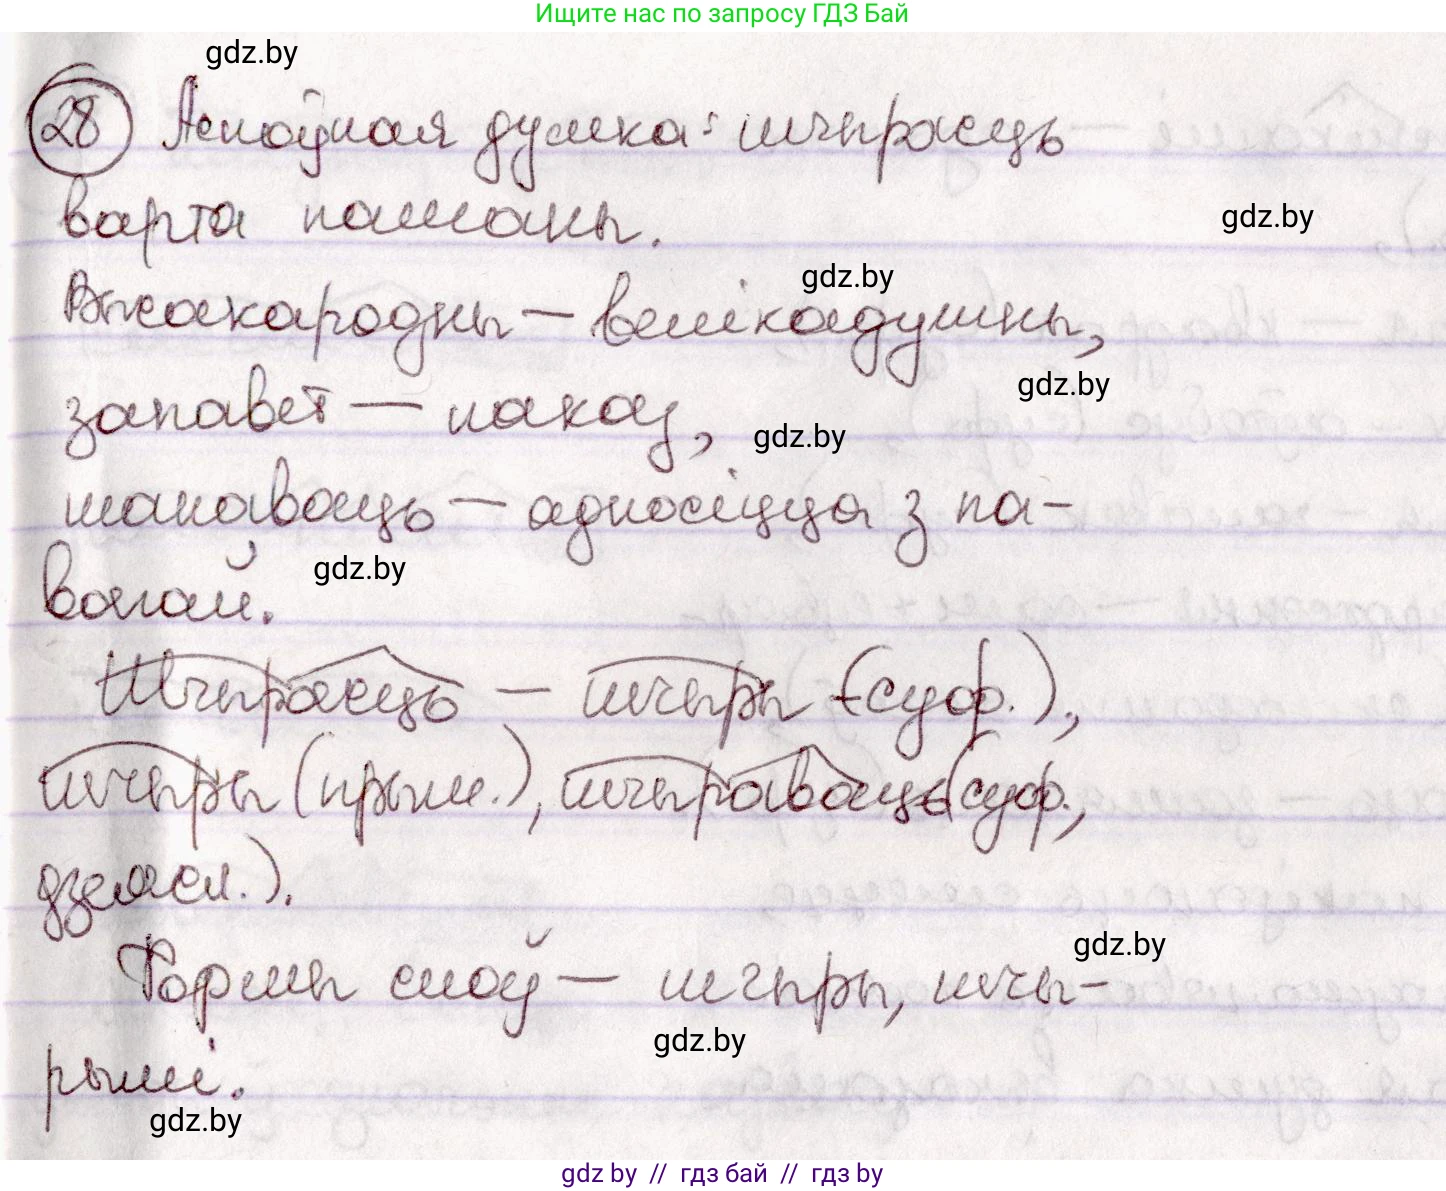 Ищите нас по запросу ГДЗ Бай
gdz.by
28 Асноўная думка: шчырасць
варта пашаны.
gdz.by
gdz.by
Высакародны – велікадушны,
gdz.by
запавет – наказ,
gdz.by
шанаваць – адносіцца з па-
вагай.
gdz.by
Шчырасць – шчыры (суф.),
шчыры (прым.), шчыраваць (суф,
дзеясл.).
gdz.by
Формы слоў – шчыры, шчы-
gdz.by
рымі.
gdz.by
gdz by // гдз бай // гдз by